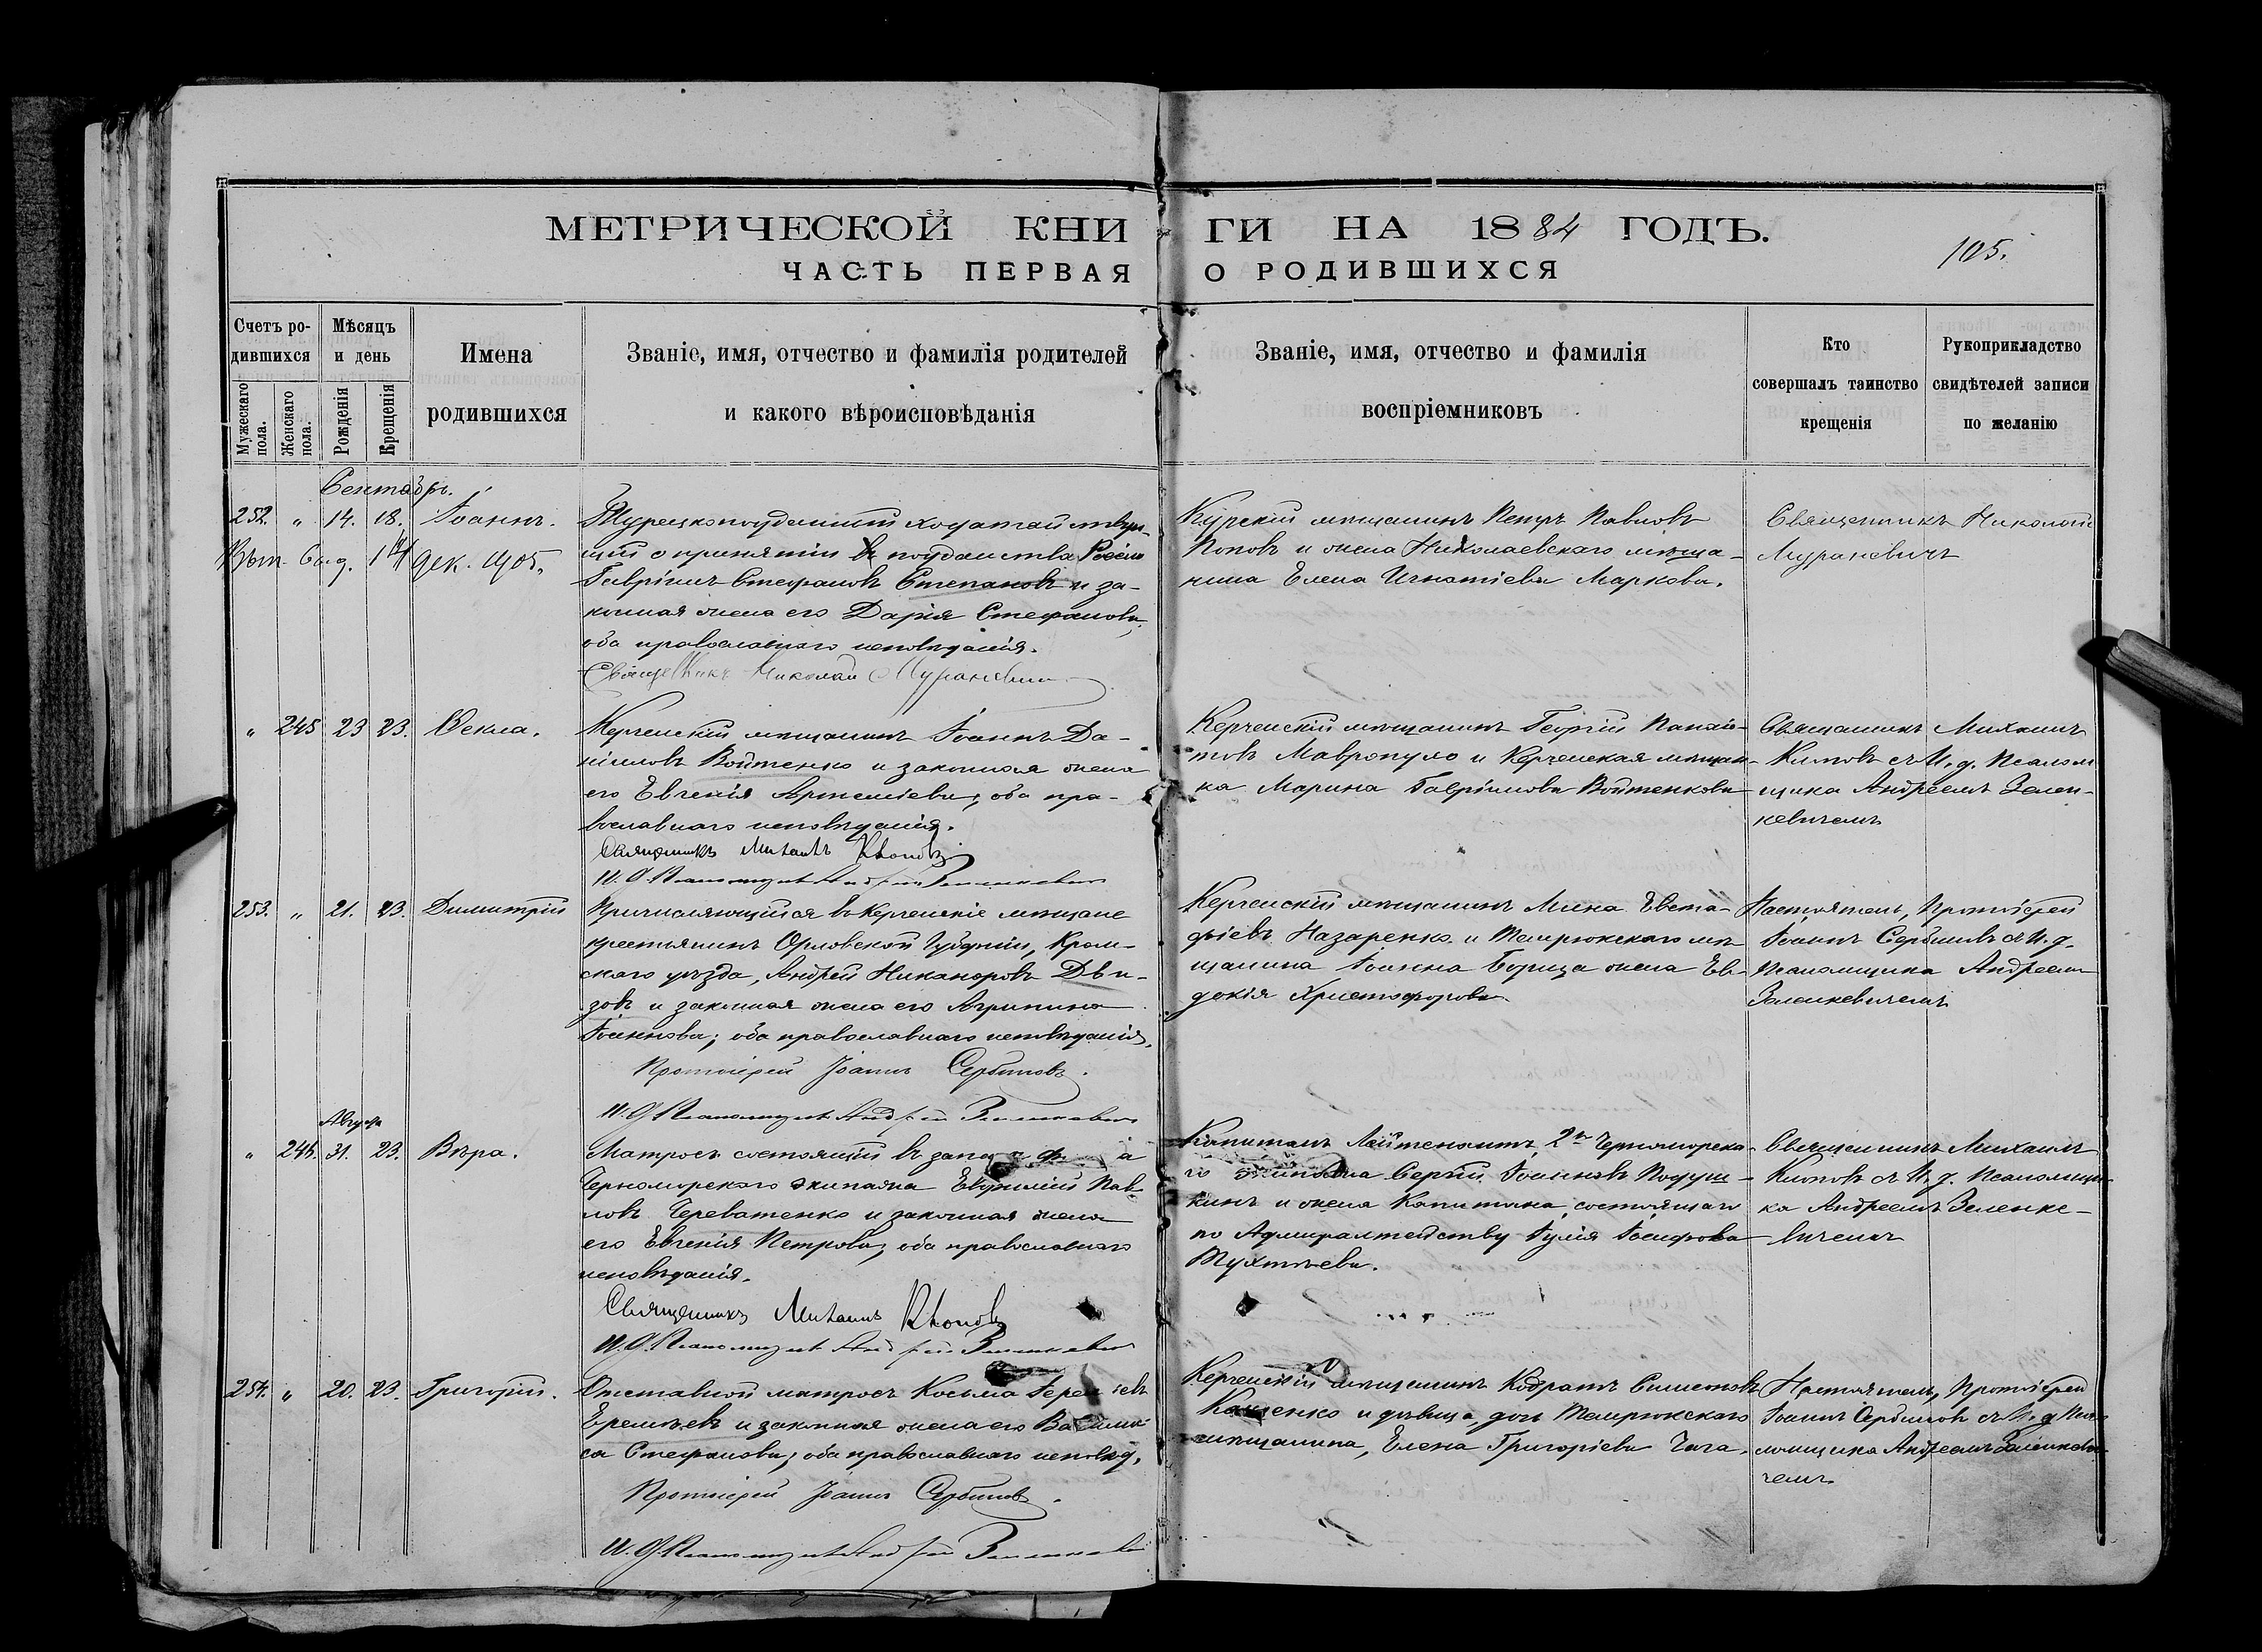 МЕТРИЧЕСКОЙ КНИГИ НА 1884 ГОДЪ.
105.
ЧАСТЬ ПЕРВАЯ О РОДИВШИХСЯ
Счетъ родившихся
Мужескаго пола.
Женскаго пола.
Мѣсяцъ и день
Рожденія
Крещенія
Имена
родившихся
Званіе, имя, отчество и фамилія родителей
и какого вѣроисповѣданія
Званіе, имя, отчество и фамилія
воспріемниковъ
Кто
совершалъ таинство
крещенія
Рукоприкладство
свидѣтелей записи
по желанію
Сентябрь.
252. " 14. 18. Іоаннъ.
Турецкоподданный ходатайствую-
щій о принятіи въ подданства Россіи
Гавріилъ Стефановъ Степановъ и за-
конная жена его Дарія Стефанова,
оба православнаго исповѣданія.
Священникъ Николай Мураневичъ
Курскій мѣщанинъ Петръ Павловъ
Поповъ и жена Николаевскаго мѣща-
нина Елена Игнатіева Маркова.
Священникъ Николай
Мураневичъ
" 245 23 23. Ѳекла.
Керченскій мѣщанинъ Іоаннъ Да-
ніиловъ Войтенко и законная жена
его Евгенія Артеміева, оба пра-
вославнаго исповѣданія.
Священникъ Михаилъ Клоповъ
И. д. Псаломщика Андрей Зеленкевичъ
Керченскій мѣщанинъ Георгій Панаіо-
товъ Мавропуло и Керченская мѣщан-
ка Марина Гавріилова Войтенкова
Священникъ Михаилъ
Клоповъ съ И. д. Псалом
щика Андреемъ Зелен-
кевичемъ
253. " 21. 23. Димитрій
Причисляющійся въ Керченскіе мѣщане
крестьянинъ Орловской Губерніи, Кром-
скаго уѣзда, Андрей Никаноровъ Дви-
зовъ и законная жена его Агрипина
Іоаннова; оба православнаго исповѣданія.
Протоіерей Іоаннъ Сербиновъ.
И. д. Псаломщика Андрей Зеленкевичъ
Керченскій мѣщанинъ Мина Евста-
фіевъ Назаренко и Темрюкскаго мѣ-
щанина Іоанна жена Ев-
докія Христофорова.
Настоятель, Протоіерей
Іоаннъ Сербиновъ съ И. д.
Псаломщика Андреемъ
Зеленкевичемъ
Августа
" 246. 31. 23. Вѣра.
Матросъ состоящій въ
Черноморскаго экипажа Евфимій Пав-
ловъ Череватенко и законная жена
его Евгенія Петрова; оба православнаго
исповѣданія.
Священникъ Михаилъ Клоповъ
И. д. Псаломщика Андрей Зеленкевичъ
Капитанъ Лейтенантъ, 2го Черноморска-
го экипажа Сергій Іоанновъ Подуш-
кинъ и жена Капитана, состоящаго
по Адмиралтейству Іулія Іосифова
Тухтѣева.
Священникъ Михаилъ
Клоповъ съ И. д. Псаломщи-
ка Андреемъ Зеленке-
вичемъ
254. " 20. 23. Григорій.
Отставной матросъ Косьма
Еремѣевъ и законная жена его Васили-
са Стефанова; оба православнаго исповѣд.
Протоіерей Іоаннъ Сербиновъ.
И. д. Псаломщика Андрей Зеленкевичъ
Керченскій мѣщанинъ Кодратъ Симеоновъ
и дѣвица, дочь Темрюкскаго
мѣщанина, Елена Григоріева
Настоятель, Протоіерей
Іоаннъ Сербиновъ съ И. д. Пса-
ломщика Андреемъ Зеленкеви-
чемъ